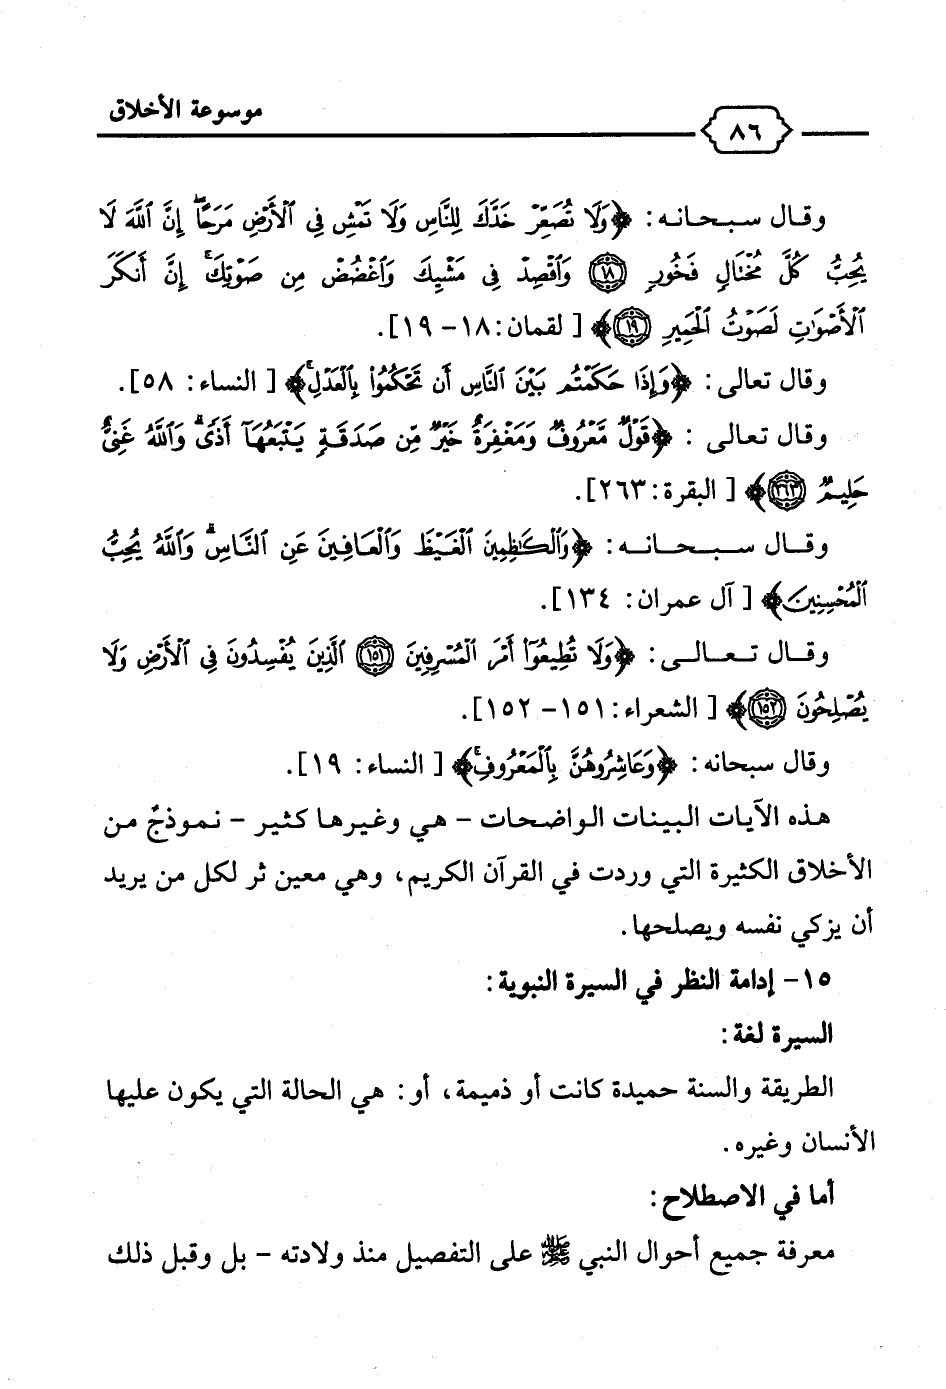 موسوعة الأخلاق
٨٦
وقال سبحانه: ﴿وَلَا تُصَعِّرْ خَدَّكَ لِلنَّاسِ وَلَا تَمْشِ فِي ٱلْأَرْضِ مَرَحًا ۖ إِنَّ ٱللَّهَ لَا
يُحِبُّ كُلَّ مُخْتَالٍ فَخُورٍ ۝١٨ وَٱقْصِدْ فِي مَشْيِكَ وَٱغْضُضْ مِن صَوْتِكَ ۚ إِنَّ أَنكَرَ
ٱلْأَصْوَٰتِ لَصَوْتُ ٱلْحَمِيرِ ۝١٩﴾ [ لقمان: ١٨- ١٩].
وقال تعالى: ﴿وَإِذَا حَكَمْتُم بَيْنَ ٱلنَّاسِ أَن تَحْكُمُوا۟ بِٱلْعَدْلِ ۚ﴾ [ النساء: ٥٨].
وقال تعالى : ﴿قَوْلٌ مَّعْرُوفٌ وَمَغْفِرَةٌ خَيْرٌ مِّن صَدَقَةٍ يَتْبَعُهَآ أَذًى ۗ وَٱللَّهُ غَنِيٌّ
حَلِيمٌ ۝٢٦٣﴾ [ البقرة: ٢٦٣].
وقال سبحانه: ﴿وَٱلْكَٰظِمِينَ ٱلْغَيْظَ وَٱلْعَافِينَ عَنِ ٱلنَّاسِ ۗ وَٱللَّهُ يُحِبُّ
ٱلْمُحْسِنِينَ﴾ [ آل عمران: ١٣٤].
وقال تعالى: ﴿وَلَا تُطِيعُوٓا۟ أَمْرَ ٱلْمُسْرِفِينَ ۝١٥١ ٱلَّذِينَ يُفْسِدُونَ فِي ٱلْأَرْضِ وَلَا
يُصْلِحُونَ ۝١٥٢﴾ [ الشعراء: ١٥١- ١٥٢].
وقال سبحانه: ﴿وَعَاشِرُوهُنَّ بِٱلْمَعْرُوفِ ۚ﴾ [ النساء: ١٩].
هذه الآيات البينات الواضحات - هي وغيرها كثير - نموذجٌ من
الأخلاق الكثيرة التي وردت في القرآن الكريم، وهي معين ثر لكل من يريد
أن يزكي نفسه ويصلحها.
١٥- إدامة النظر في السيرة النبوية:
السيرة لغة:
الطريقة والسنة حميدة كانت أو ذميمة، أو: هي الحالة التي يكون عليها
الأنسان وغيره.
أما في الاصطلاح:
معرفة جميع أحوال النبي ﷺ على التفصيل منذ ولادته - بل وقبل ذلك